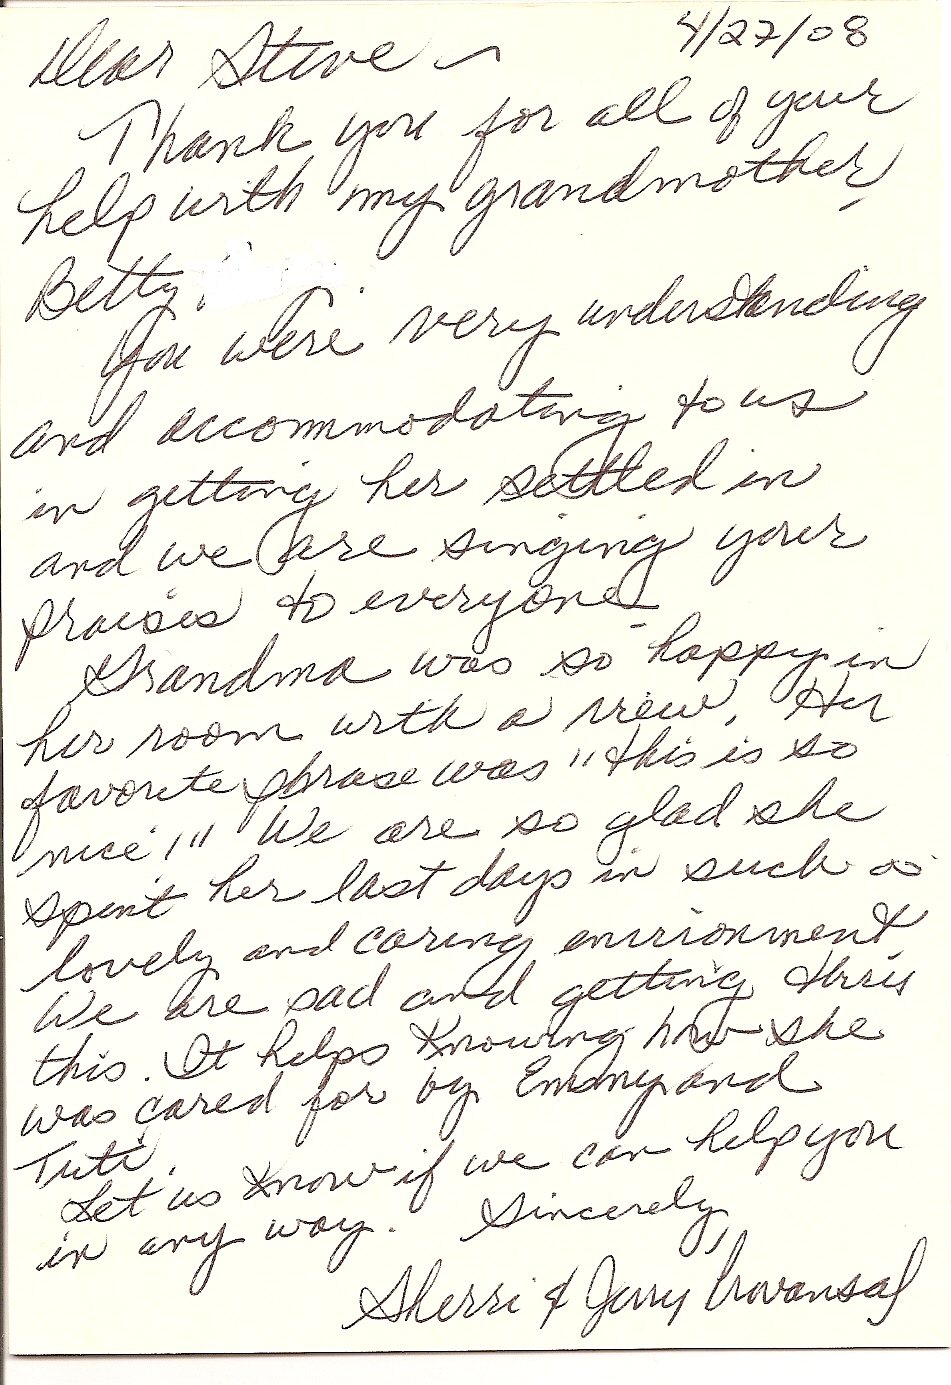 4/27/08
Dear Steve ~
Thank you for all of your
help with my grandmother,
Betty
You were very understanding
and accommodating to us
in getting her settled in
and we are singing your
praises to everyone.
Grandma was so happy in
her room with a view. Her
favorite phrase was "this is so
nice!" We are so glad she
spent her last days in such a
lovely and caring environment
We are sad and getting thru
this. It helps knowing how she
was cared for by Emmy and
Tuti.
Let us know if we can help you
in any way. Sincerely,
Sherri & Jerry Provansal